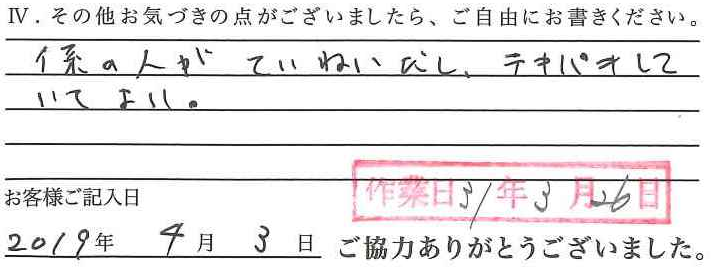 Ⅳ．その他お気づきの点がございましたら、ご自由にお書きください。
係の人が ていねいだし、テキパキして
いて よい。
作業日31年3月26日
お客様ご記入日
2019年 4月 3日 ご協力ありがとうございました。